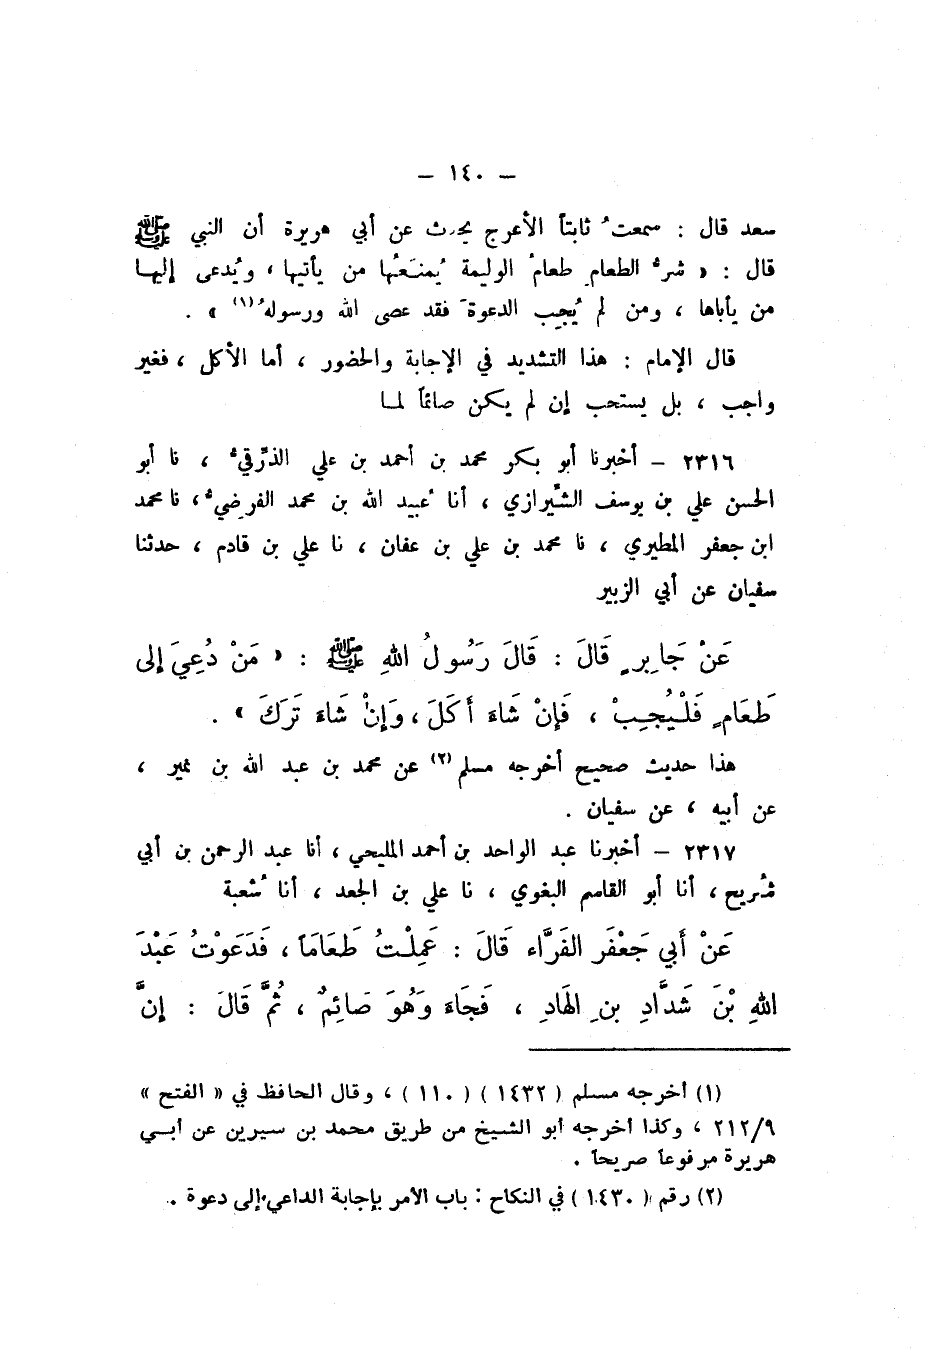 — ١٤٠ —
سعد قال : سمعتُ ثابتاً الأعرج يحدث عن أبي هريرة أن النبي ﷺ
قال : « شرُّ الطعامِ طعامُ الوليمة يُمنَعُها من يأتيها ، ويُدعى إليها
من يأباها ، ومن لم يُجِب الدعوةَ فقد عصى الله ورسولهُ (١) » .
قال الإمام : هذا التشديد في الإجابة والحضور ، أما الأكل ، فغير
واجب ، بل يستحب إن لم يكن صائماً لما
٢٣١٦ – أخبرنا أبو بكر محمد بن أحمد بن علي الذرَّقيُّ ، نا أبو
الحسن علي بن يوسف الشِّيرازي ، أنا عُبيد الله بن محمد الفرضيُّ ، نا محمد
ابن جعفر المطيري ، نا محمد بن علي بن عفان ، نا علي بن قادم ، حدثنا
سفيان عن أبي الزبير
عَنْ جَابِرٍ قَالَ : قَالَ رَسُولُ اللهِ ﷺ : « مَنْ دُعِيَ إلى
طَعَامٍ فَلْيُجِبْ ، فَإنْ شَاءَ أَكَلَ ، وَإنْ شَاءَ تَرَكَ » .
هذا حديث صحيح أخرجه مسلم (٢) عن محمد بن عبد الله بن نمير ،
عن أبيه ، عن سفيان .
٢٣١٧ – أخبرنا عبد الواحد بن أحمد المليحي ، أنا عبد الرحمن بن أبي
شُريح ، أنا أبو القاسم البغوي ، نا علي بن الجعد ، أنا شُعبة
عَنْ أَبي جَعْفَر الفَرَّاء قَالَ : عَمِلْتُ طَعَامَاً ، فَدَعَوْتُ عَبْدَ
اللهِ بْنَ شَدَّادِ بنِ الهَادِ ، فَجَاءَ وَهُوَ صَائِمٌ ، ثُمَّ قَالَ : إنَّ
(١) أخرجه مسلم ( ١٤٣٢ ) ( ١١٠ ) ، وقال الحافظ في « الفتح »
٢١٢/٩ ، وكذا أخرجه أبو الشيخ من طريق محمد بن سيرين عن أبي
هريرة مرفوعاً صريحاً .
(٢) رقم ( ١٤٣٠ ) في النكاح : باب الأمر بإجابة الداعي إلى دعوة .